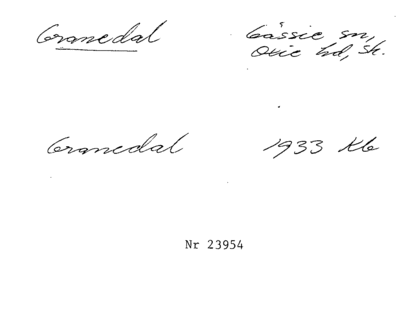 Granedal
Gässie sn,
Oxie hd, Sk.
Granedal 1933 Kb
Nr 23954